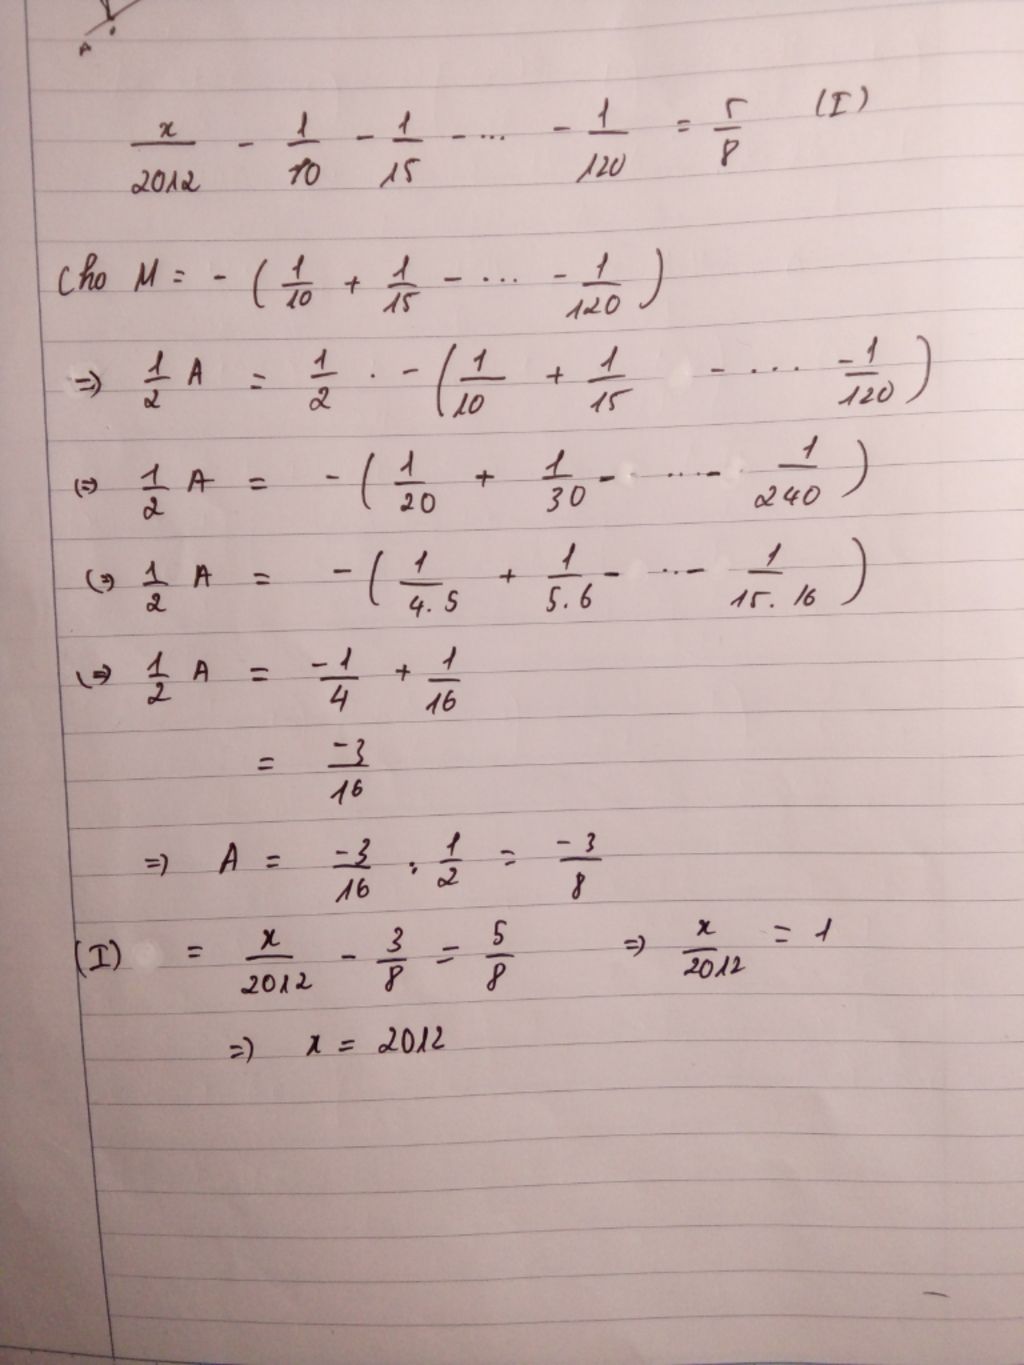 A
x/2012 - 1/10 - 1/15 - ... - 1/120 = 5/8 (I)
Cho M = - (1/10 + 1/15 - ... - 1/120)
=> 1/2 A = 1/2 . - (1/10 + 1/15 - ... -1/120)
(=> 1/2 A = - (1/20 + 1/30 - ... - 1/240)
(=> 1/2 A = - (1/4.5 + 1/5.6 - ... - 1/15.16)
(=> 1/2 A = -1/4 + 1/16
= -3/16
=> A = -3/16 : 1/2 = -3/8
(I) = x/2012 - 3/8 = 5/8 => x/2012 = 1
=> x = 2012